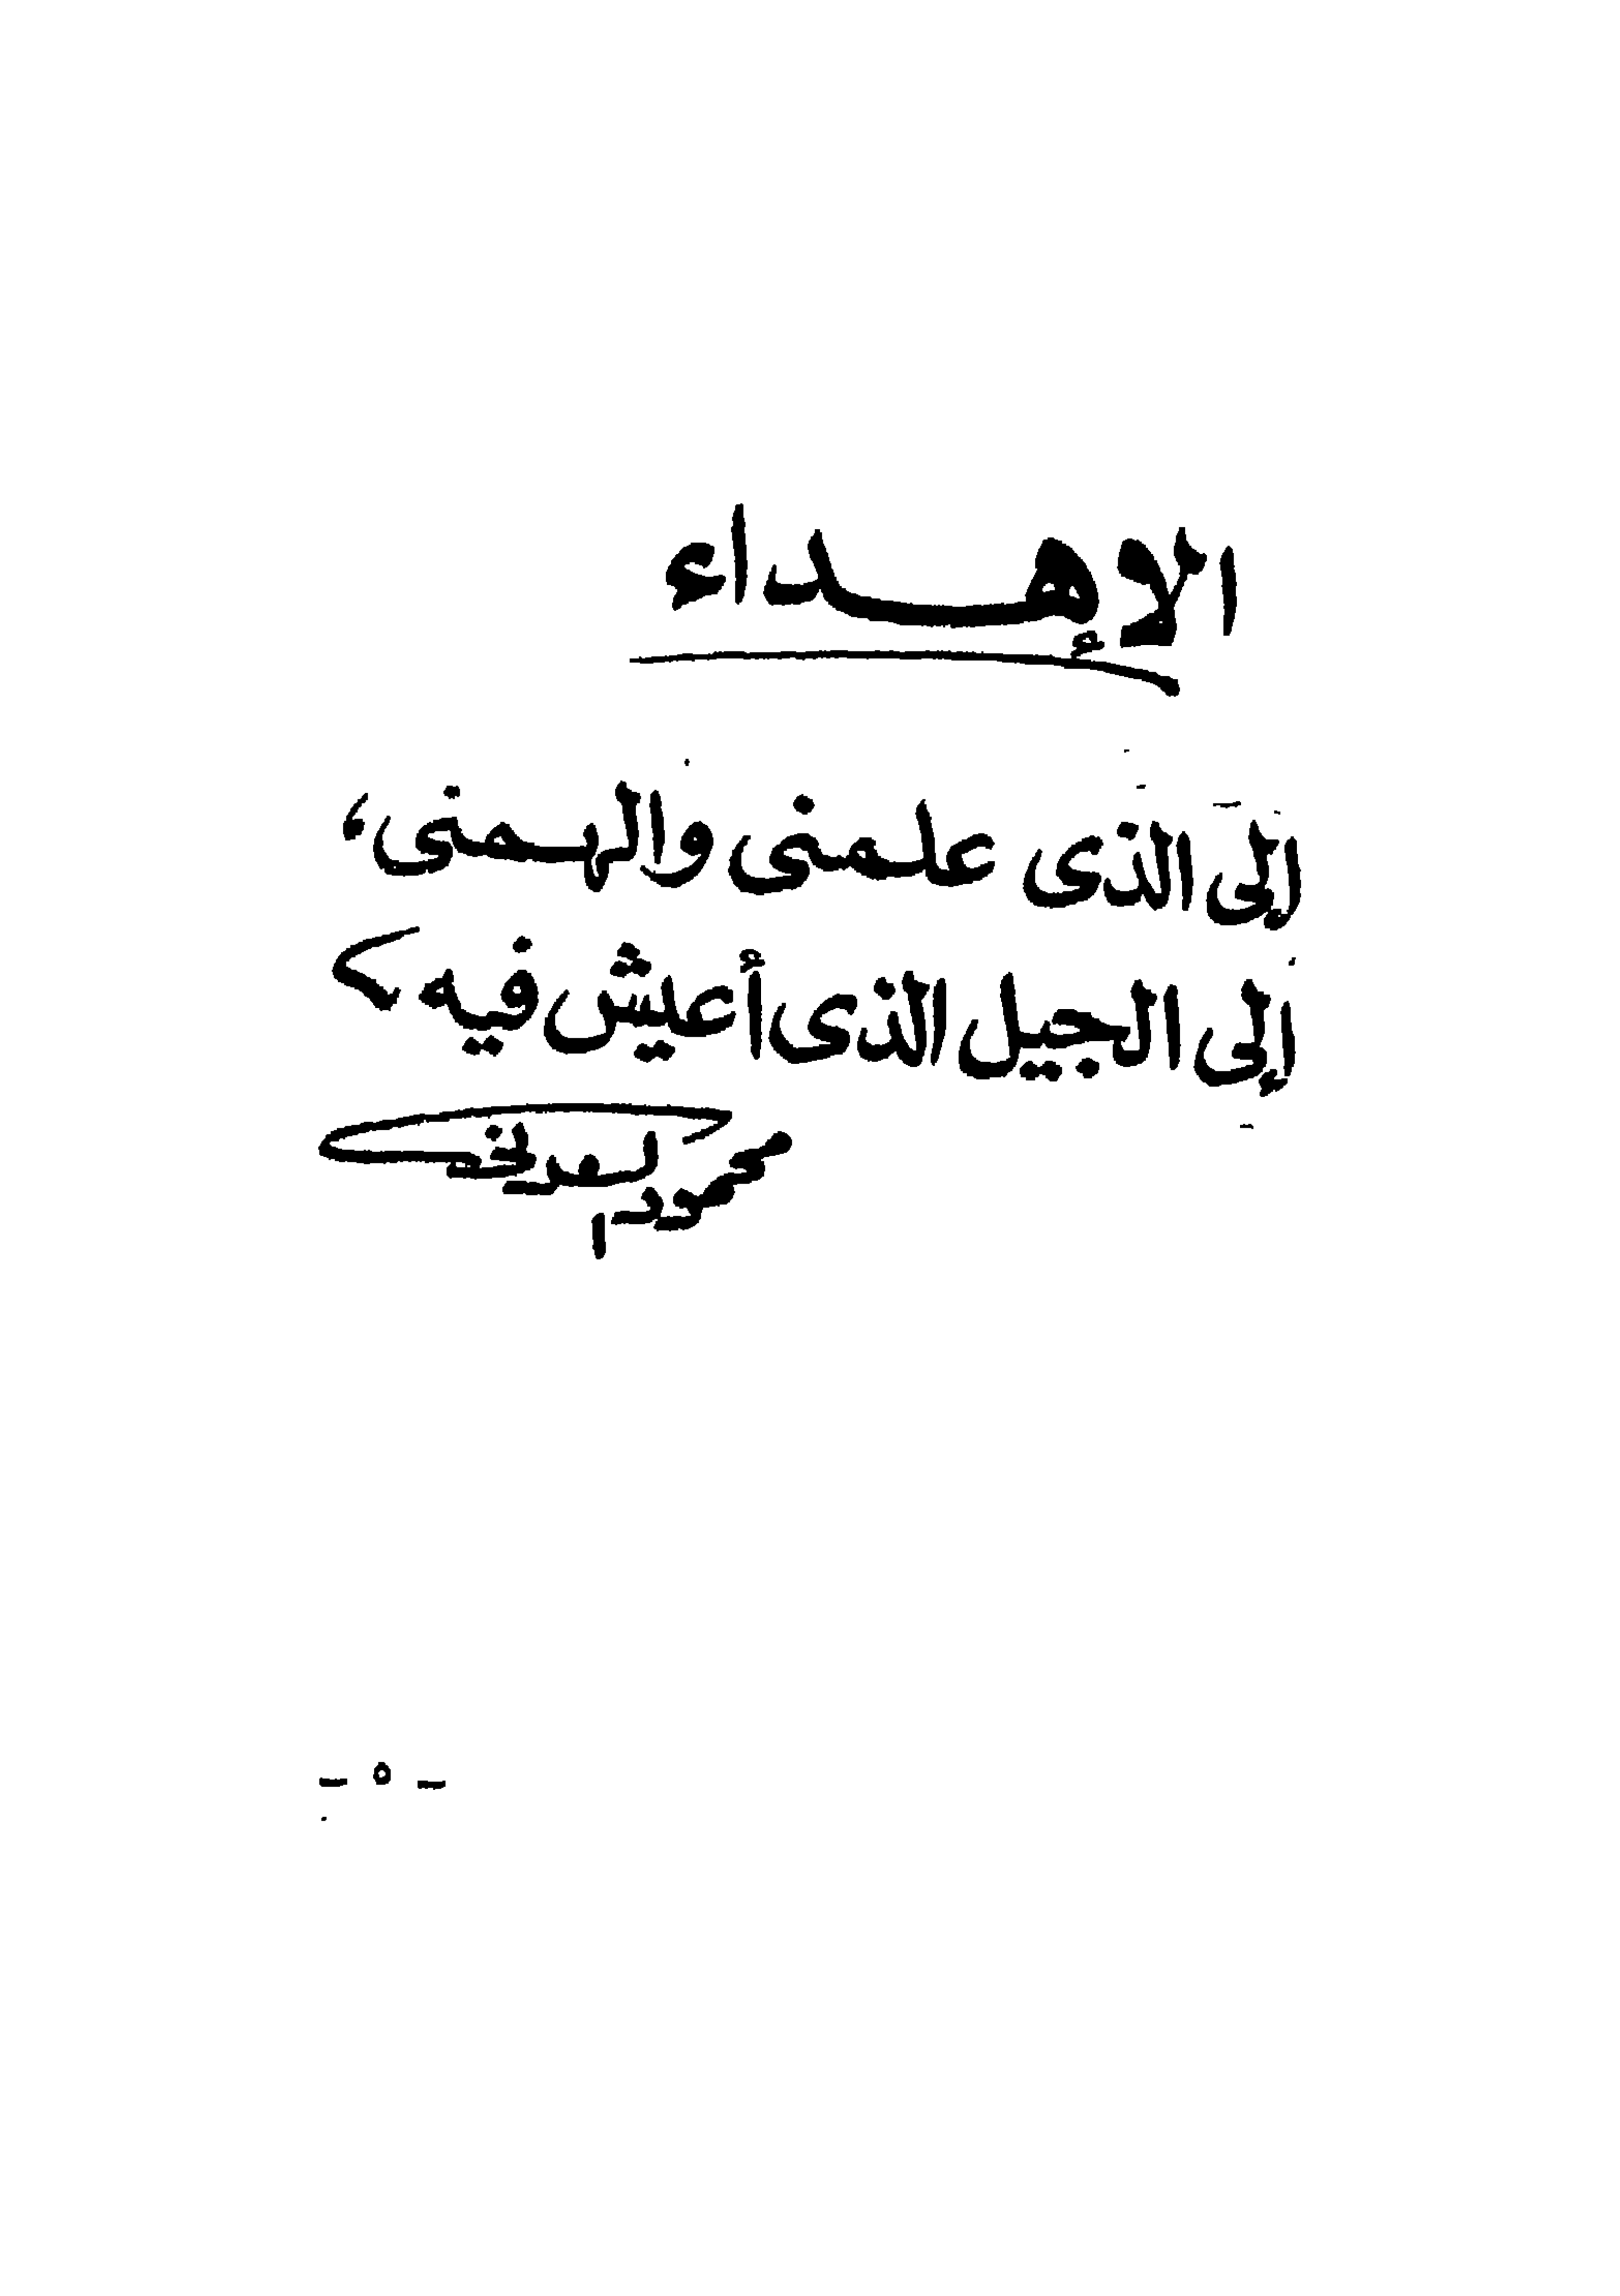 الإهداء
إلى الذى علمنى والهمنى،
إلى الجيل الذى أعيش فيه
محمود
- ٥ -